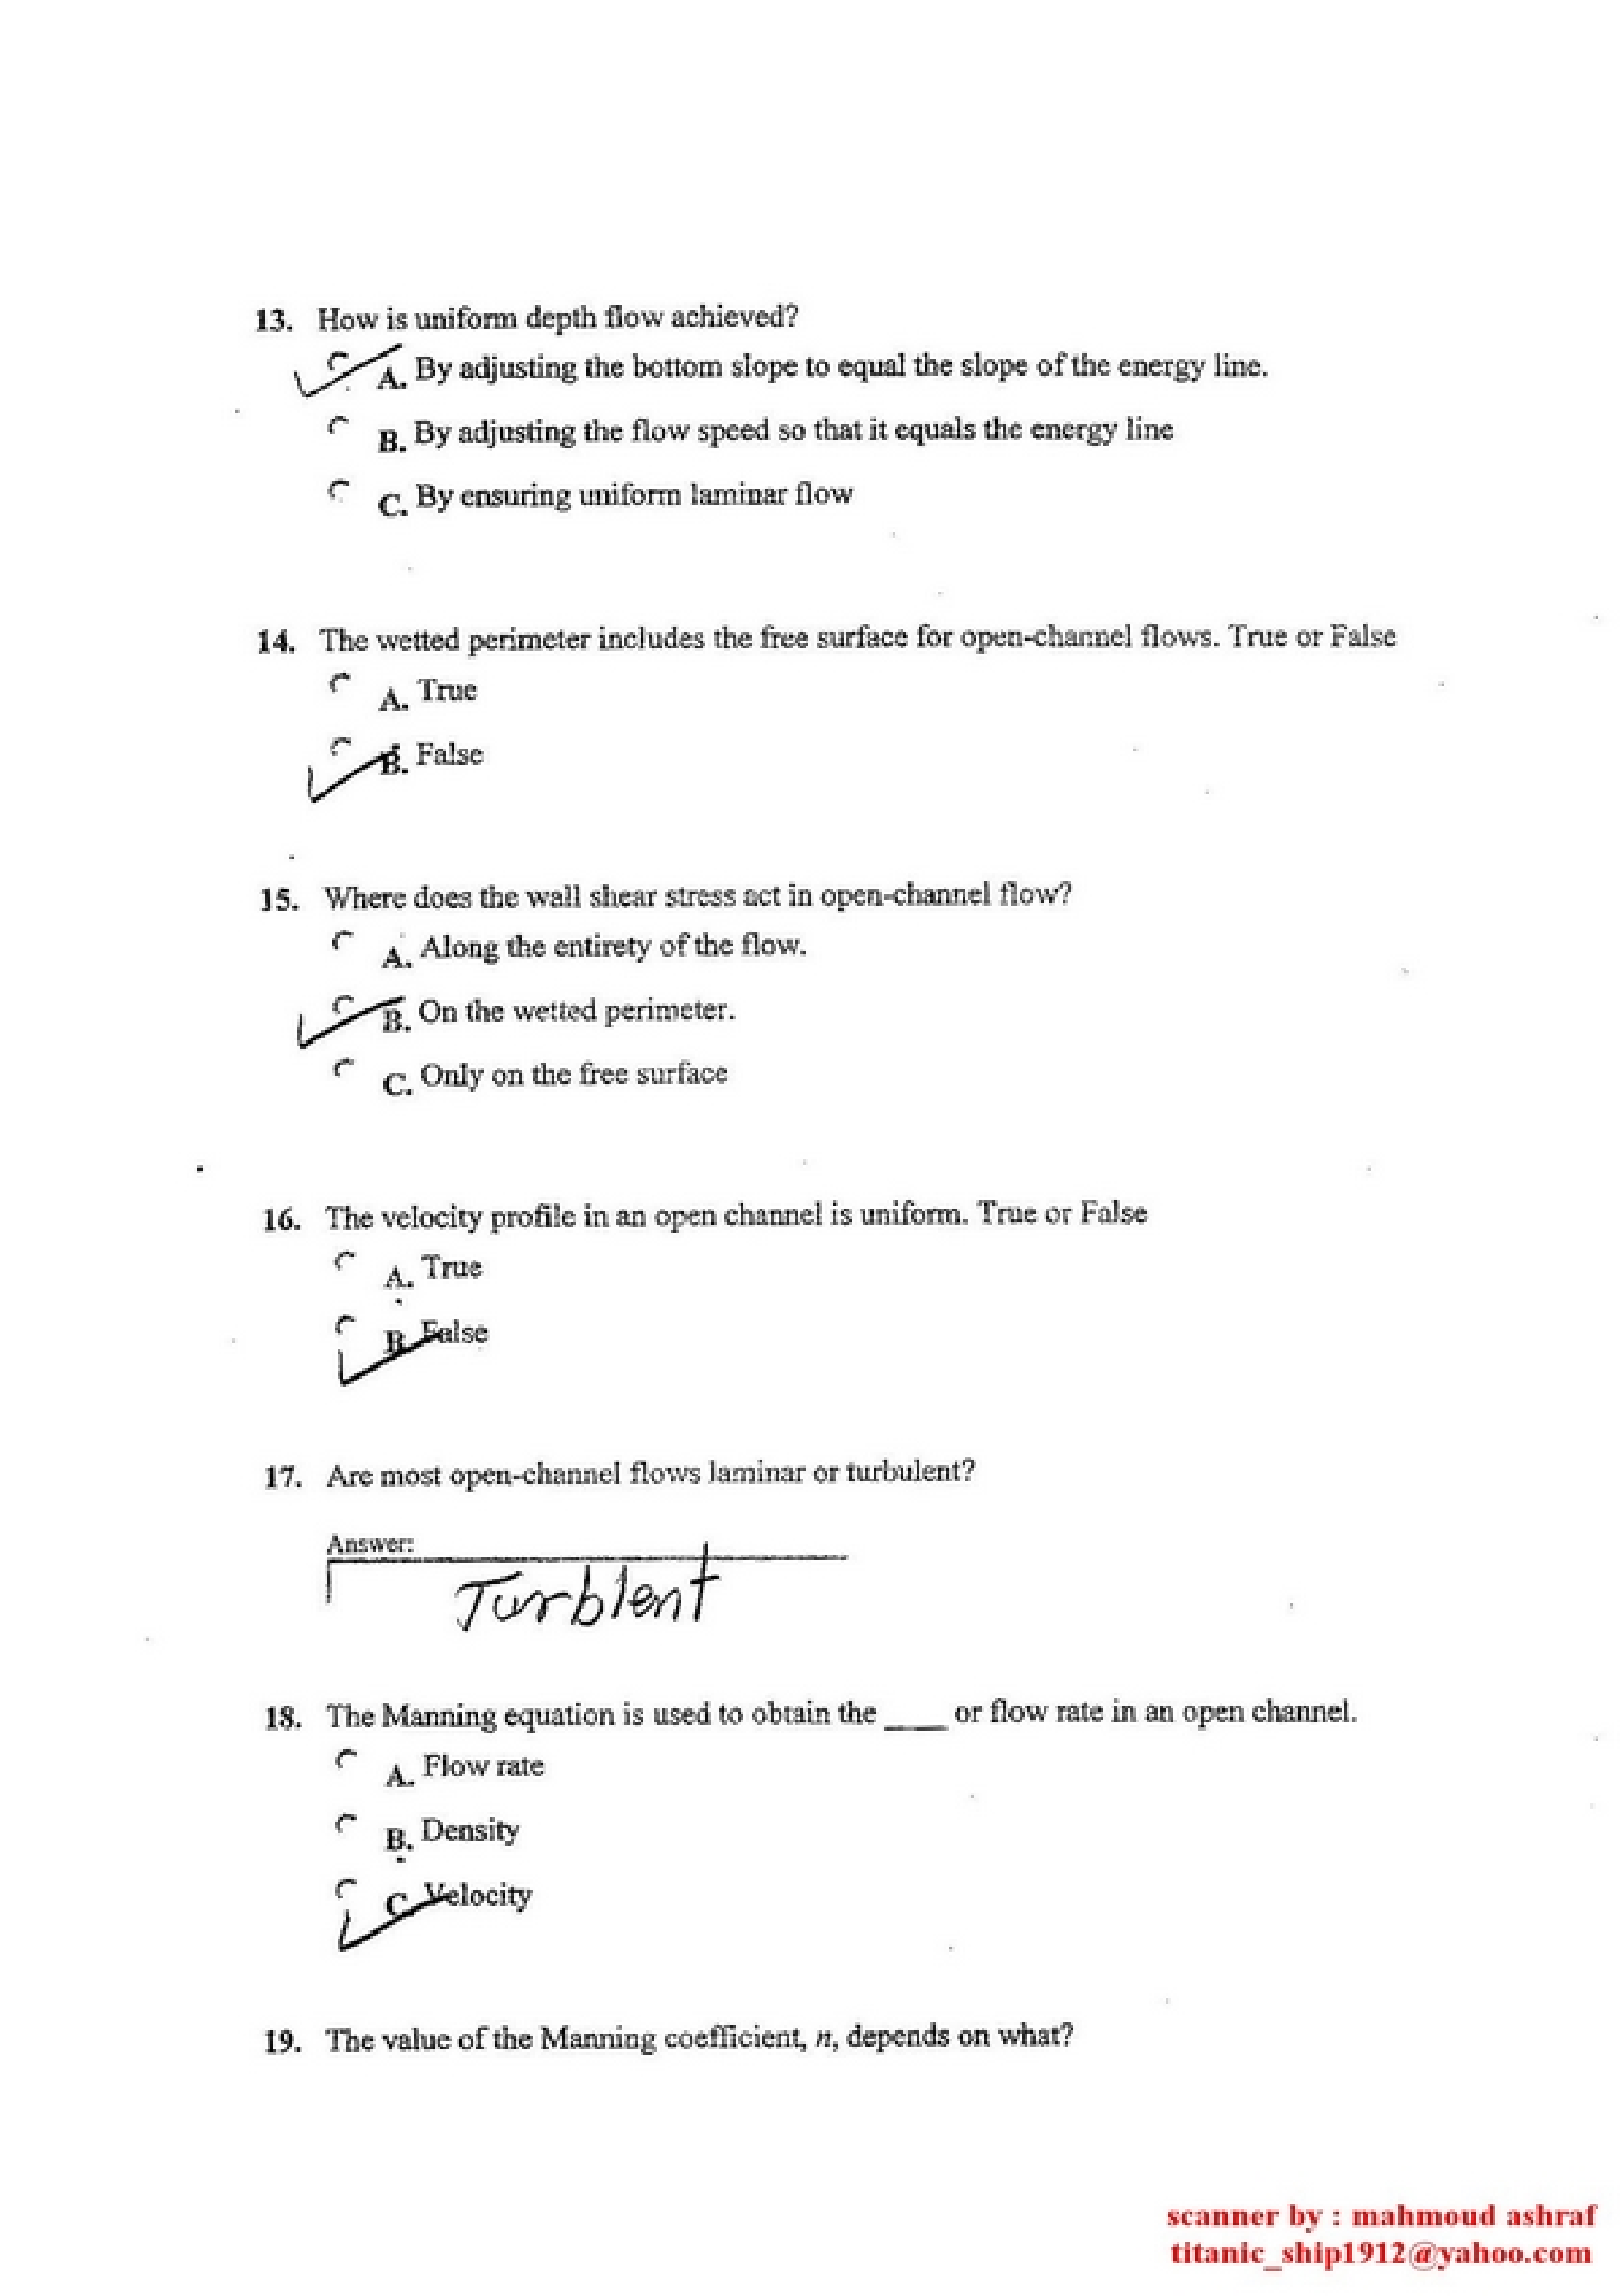 13. How is uniform depth flow achieved?
A. By adjusting the bottom slope to equal the slope of the energy line.
B. By adjusting the flow speed so that it equals the energy line
C. By ensuring uniform laminar flow
14. The wetted perimeter includes the free surface for open-channel flows. True or False
A. True
B. False
15. Where does the wall shear stress act in open-channel flow?
A. Along the entirety of the flow.
B. On the wetted perimeter.
C. Only on the free surface
16. The velocity profile in an open channel is uniform. True or False
A. True
B. False
17. Are most open-channel flows laminar or turbulent?
Answer:
Turblent
18. The Manning equation is used to obtain the ____ or flow rate in an open channel.
A. Flow rate
B. Density
C. Velocity
19. The value of the Manning coefficient, n, depends on what?
scanner by : mahmoud ashraf
titanic_ship1912@yahoo.com